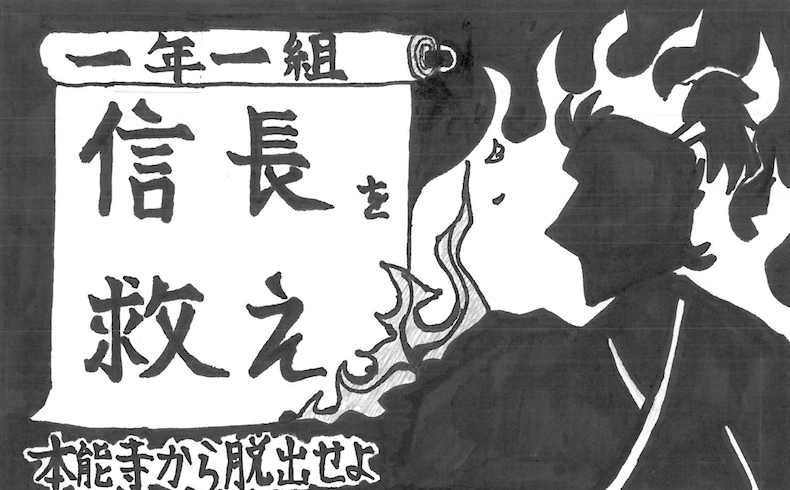 一年一組
信長を
救え
本能寺から脱出せよ